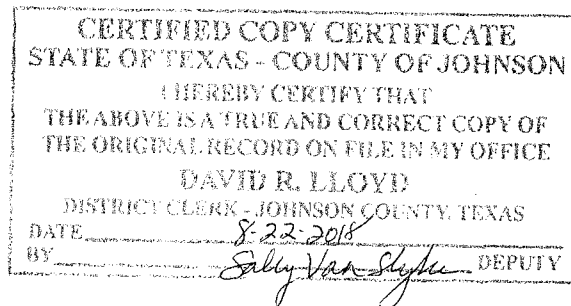 CERTIFIED COPY CERTIFICATE
STATE OF TEXAS - COUNTY OF JOHNSON
I HEREBY CERTIFY THAT
THE ABOVE IS A TRUE AND CORRECT COPY OF
THE ORIGINAL RECORD ON FILE IN MY OFFICE
DAVID R. LLOYD
DISTRICT CLERK - JOHNSON COUNTY, TEXAS
DATE 8-22-2018
BY Sally Van Slyke DEPUTY